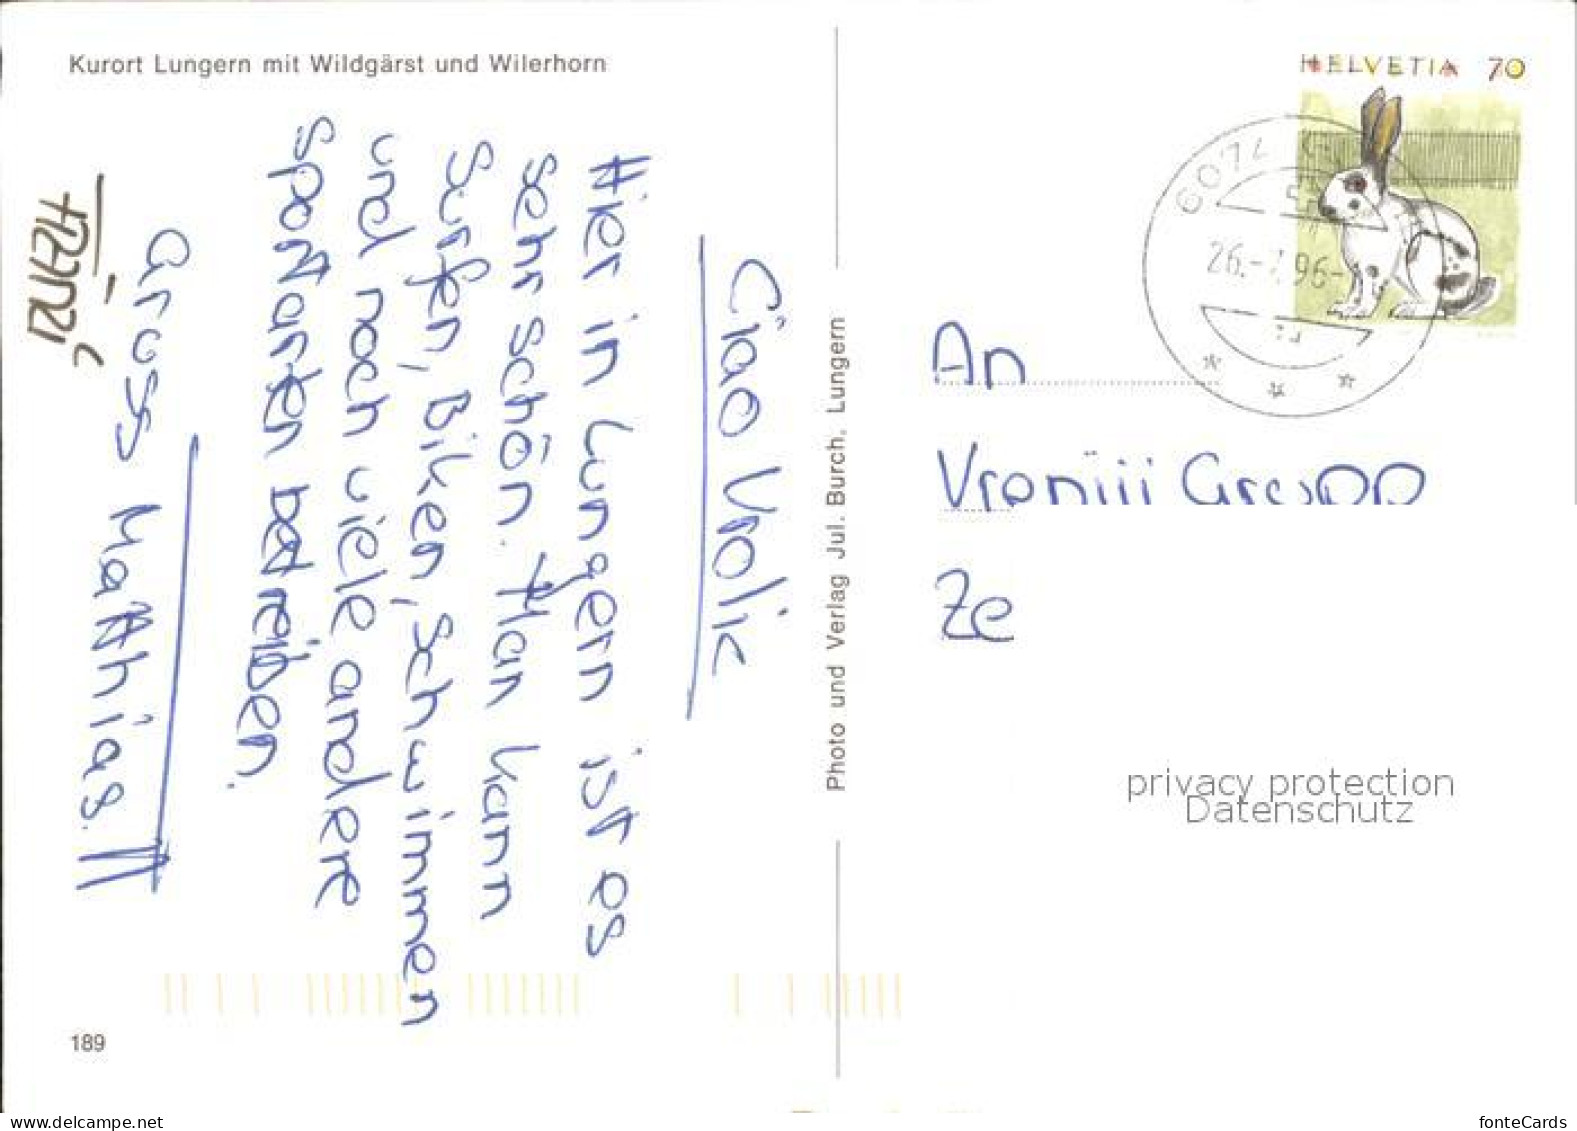 Kurort Lungern mit Wildgärst und Wilerhorn
Ciao Vrolic
Hier in Lungern ist es
sehr schön. Man kann
Surfen, Biken, Schwimmen
und noch viele andere
Sportarten betreiben.
Gruss Matthias.
189
Photo und Verlag Jul. Burch, Lungern
HELVETIA 70
26.-7.96-
An
Vroniii
Ze
privacy protection
Datenschutz
delcampe.net
fonteCards